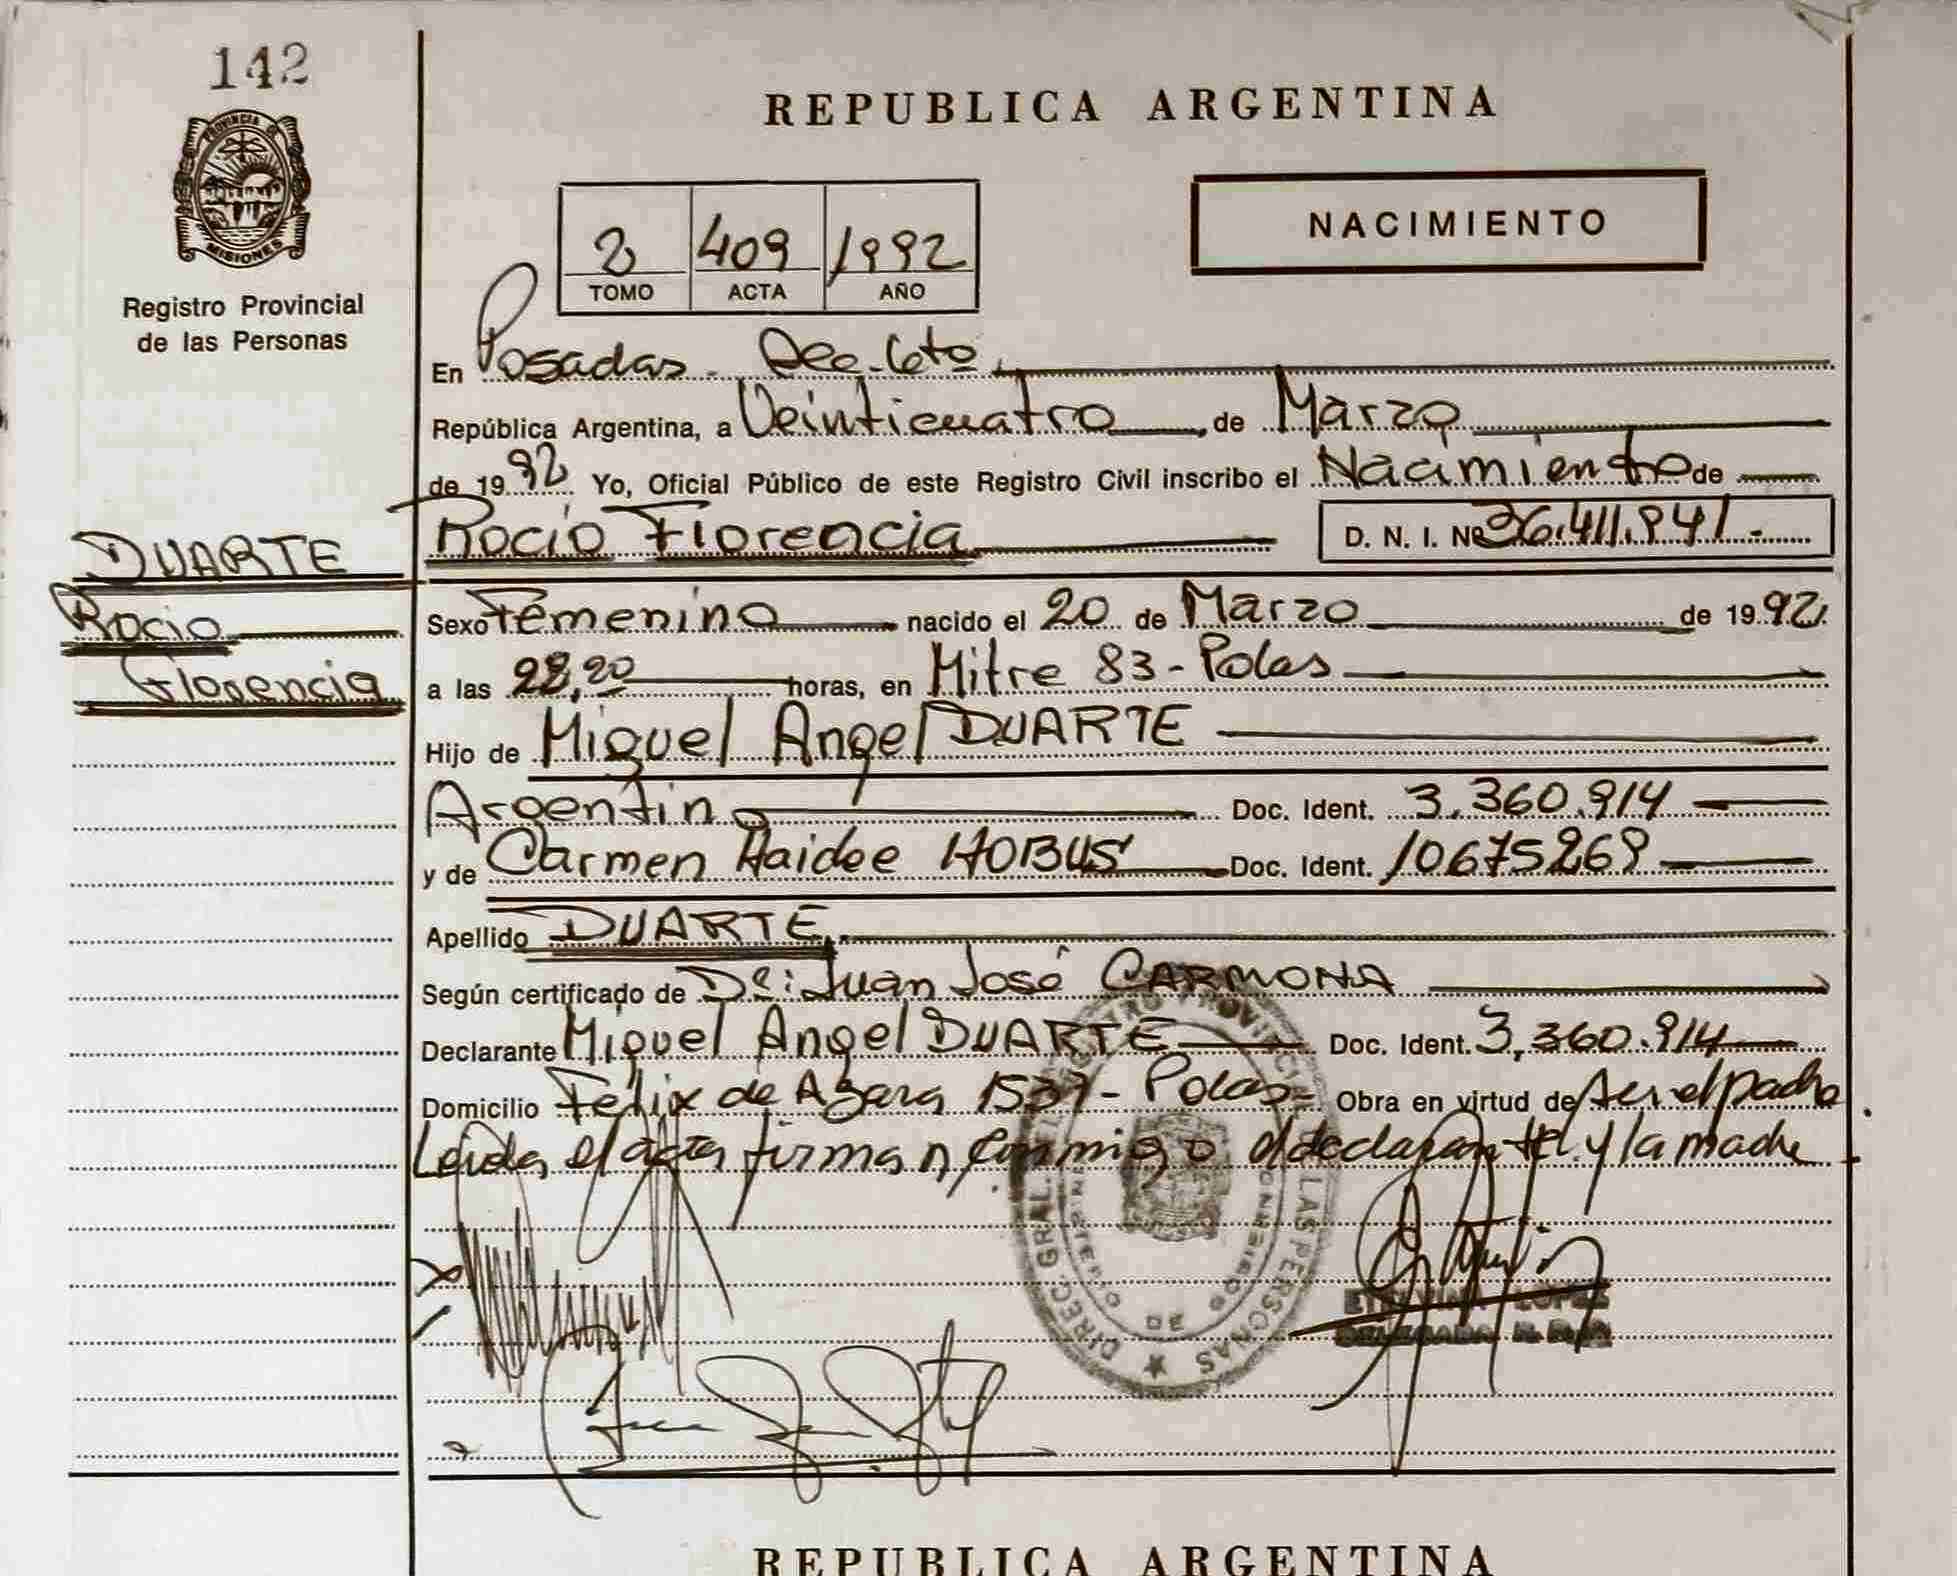 142
PROVINCIA DE
MISIONES
Registro Provincial
de las Personas
REPUBLICA ARGENTINA
NACIMIENTO
2 409 1992
TOMO ACTA AÑO
En Posadas. Dto.
República Argentina, a Veinticuatro, de Marzo
de 1992 Yo, Oficial Público de este Registro Civil inscribo el Nacimiento de
Rocio Florencia D. N. I. Nº 36.411.941.
DUARTE
Rocio
Florencia
Sexo Femenino nacido el 20 de Marzo de 1992.
a las 22,20 horas, en Mitre 83 - Pdas
Hijo de Miguel Angel DUARTE
Argentino Doc. Ident. 3.360.914
y de Carmen Haidee HOBUS Doc. Ident. 10675269
Apellido DUARTE.
Según certificado de Dr: Juan José CARMONA
Declarante Miguel Angel DUARTE Doc. Ident. 3,360.914
Domicilio Félix de Azara 1537 - Pdas - Obra en virtud de ser el padre
Leida el acta firman conmigo el declarante y la madre
DIREC. GRAL. REGISTRO PROVINCIAL DE LAS PERSONAS
MISIONES
LOPEZ
DELEGADA
REPUBLICA ARGENTINA